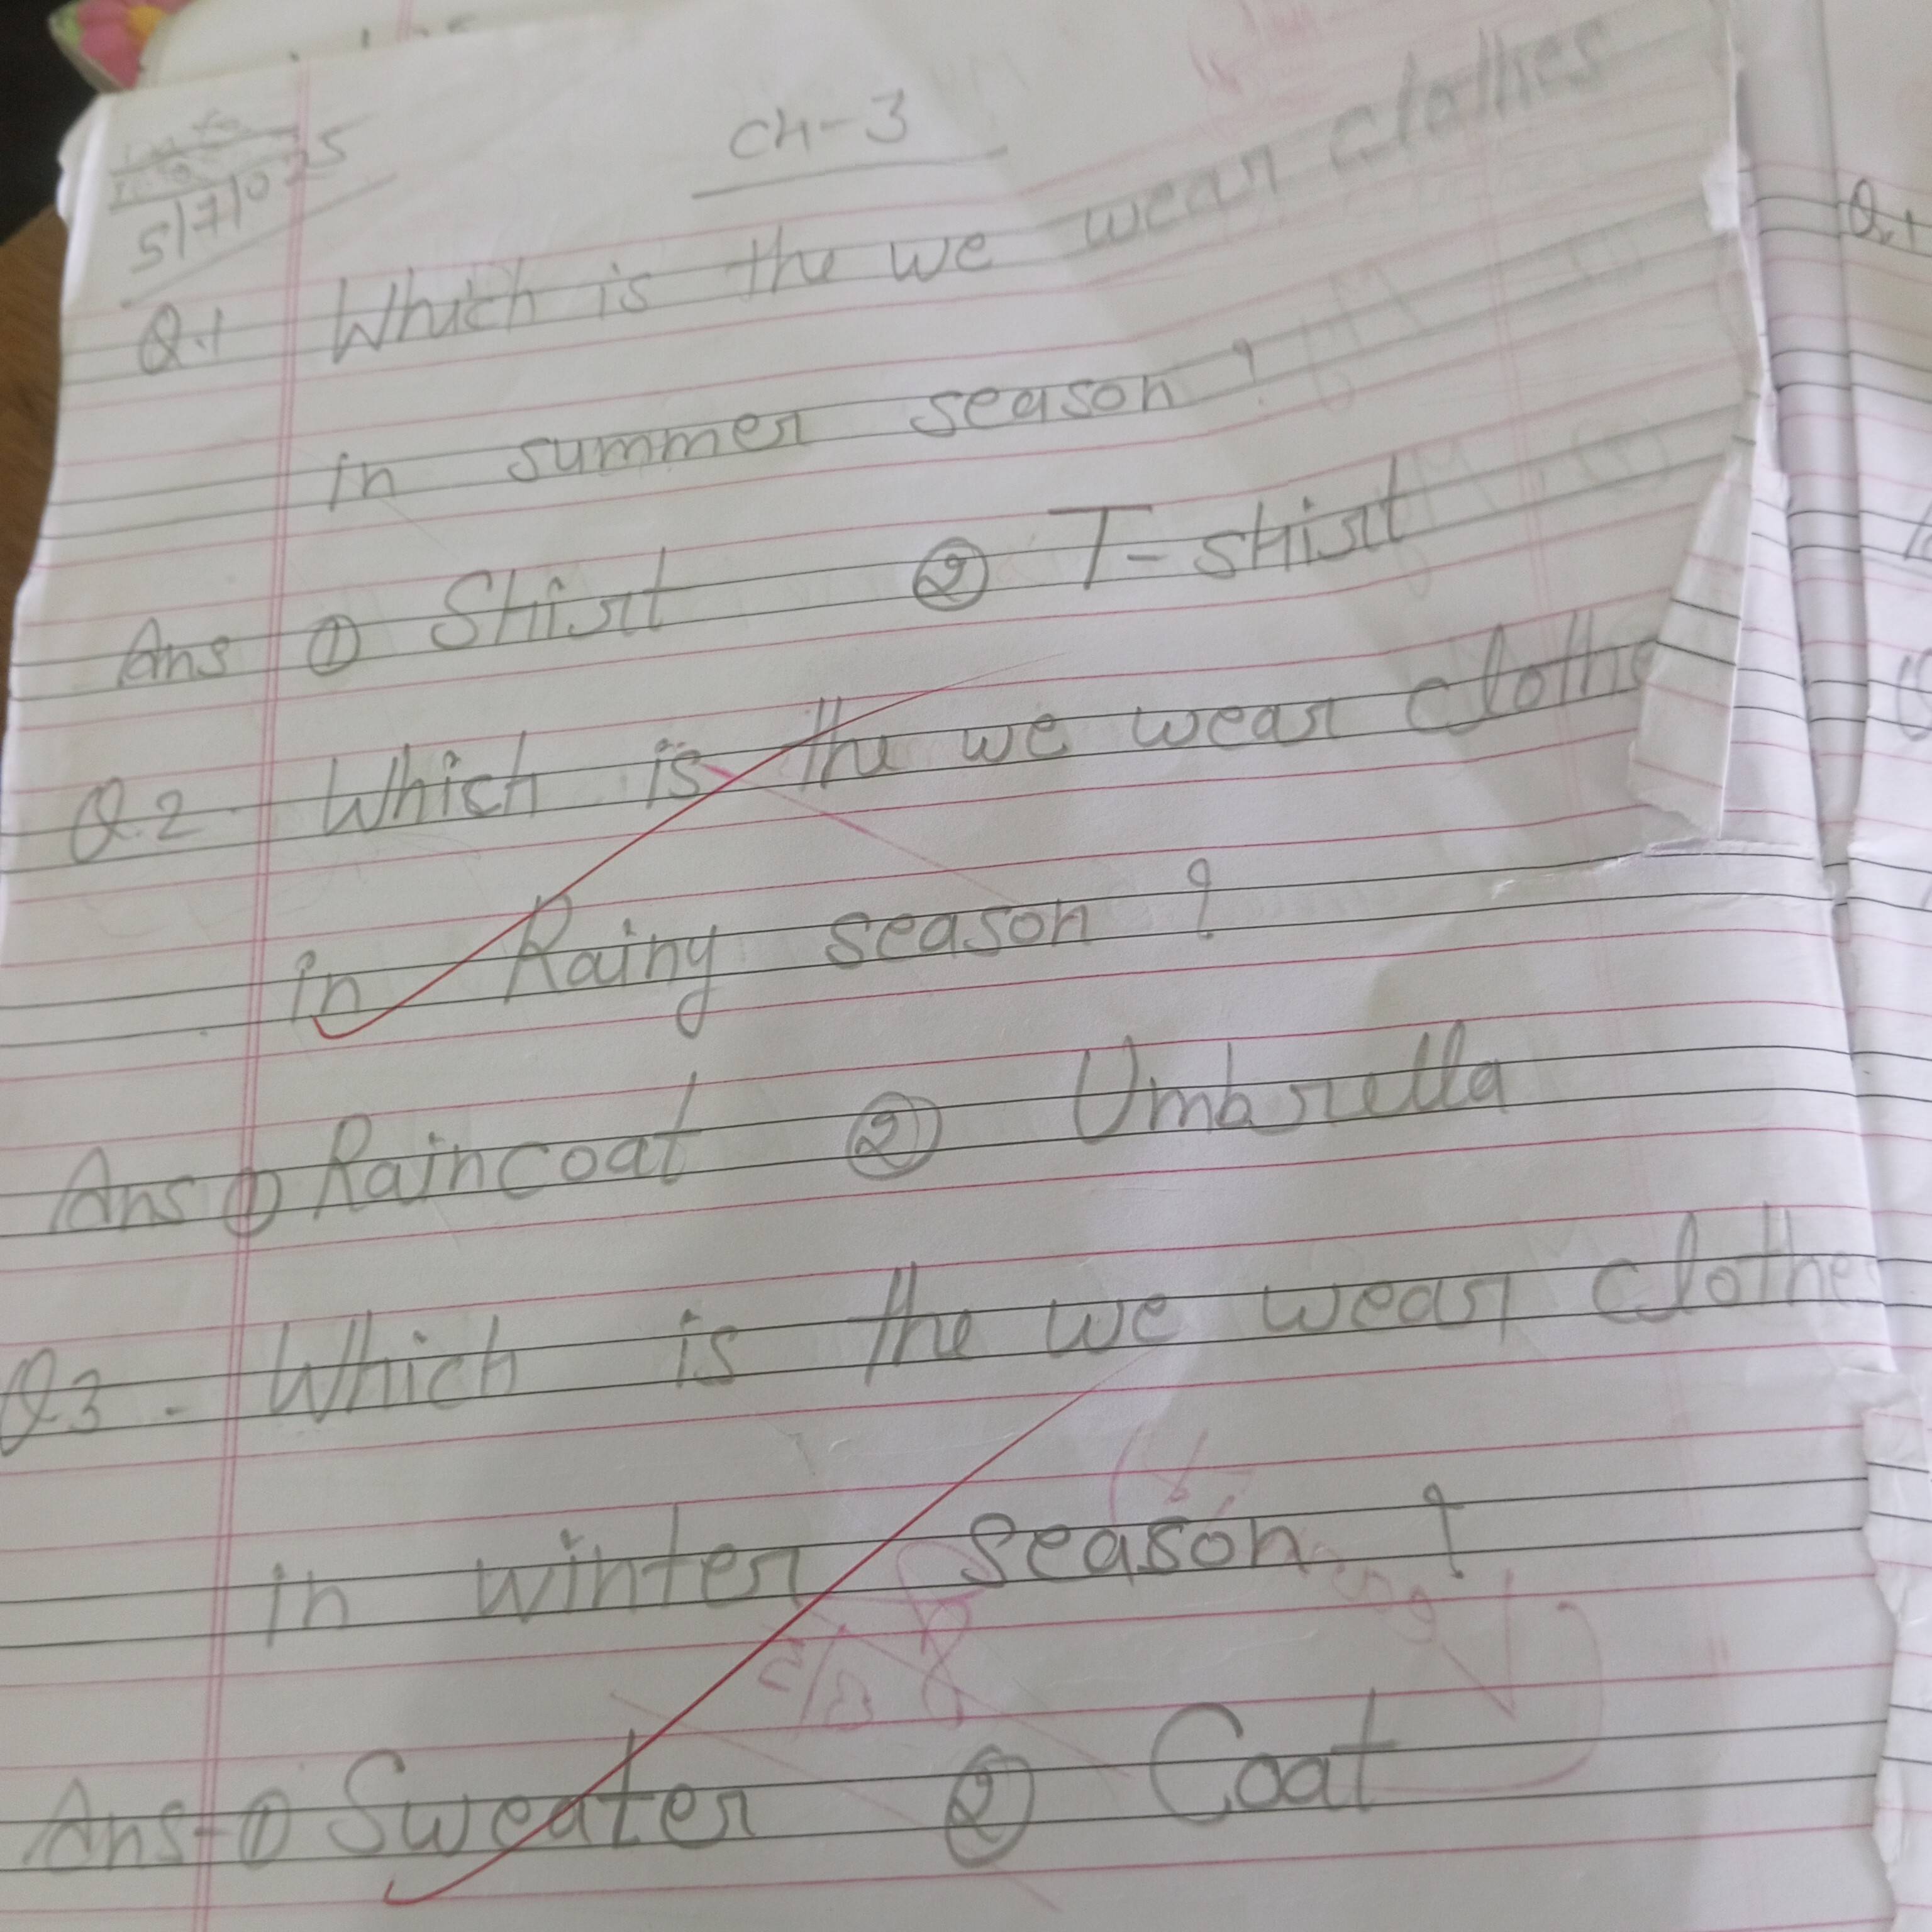 Ch-3
5/7/025
Q.1 Which is the we wear clothes
in summer season?
Ans ① Shirt ② T-shirt
Q.2 Which is the we wear clothe
in Rainy season?
Ans ① Raincoat ② Umbrella
Q.3 - Which is the we wear clothe
in winter season?
Ans-① Sweater ② Coat
Q.1